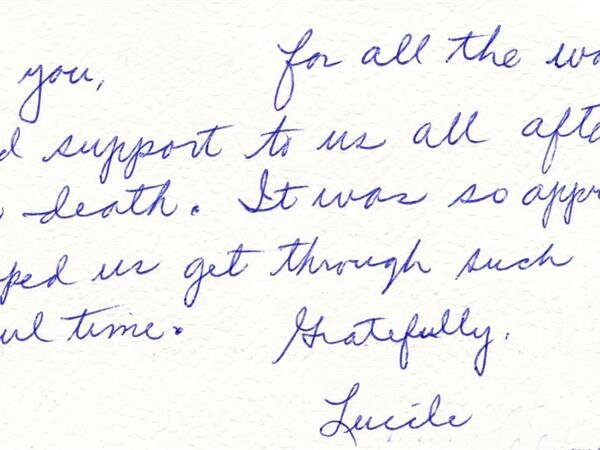 you, for all the wo
d support to us all afte
death. It was so appr
ped us get through such
ul time. Gratefully,
Lucile